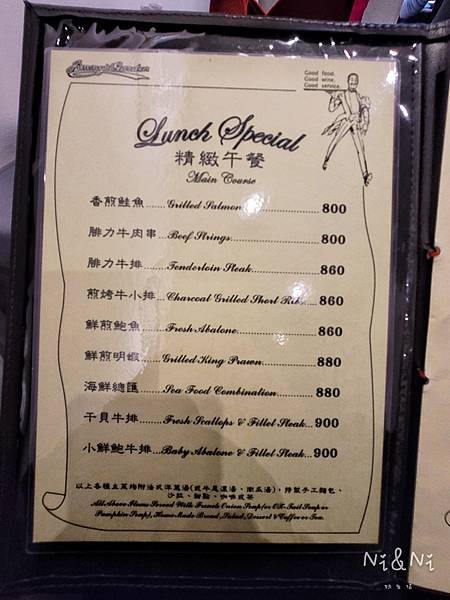 Good food.
Good wine.
Good service.
Lunch Special
精緻午餐
Main Course
香煎鮭魚......Grilled Salmon......800
腓力牛肉串...Beef Strings......800
腓力牛排......Tenderloin Steak......860
煎烤牛小排...Charcoal Grilled Short Ribs...860
鮮煎鮑魚......Fresh Abalone......860
鮮煎明蝦......Grilled King Prawn......880
海鮮總匯......Sea Food Combination......880
干貝牛排......Fresh Scallops & Fillet Steak...900
小鮮鮑牛排...Baby Abalone & Fillet Steak...900
以上各種主菜均附法式洋蔥湯(或牛尾濃湯、南瓜湯)，特製手工麵包、
沙拉、甜點、咖啡或茶
All Above Items Served With French Onion Soup(or OX-Tail Soup or
Pumpkin Soup), Home Made Bread, Salad, Dessert & Coffee or Tea.
Ni&Ni